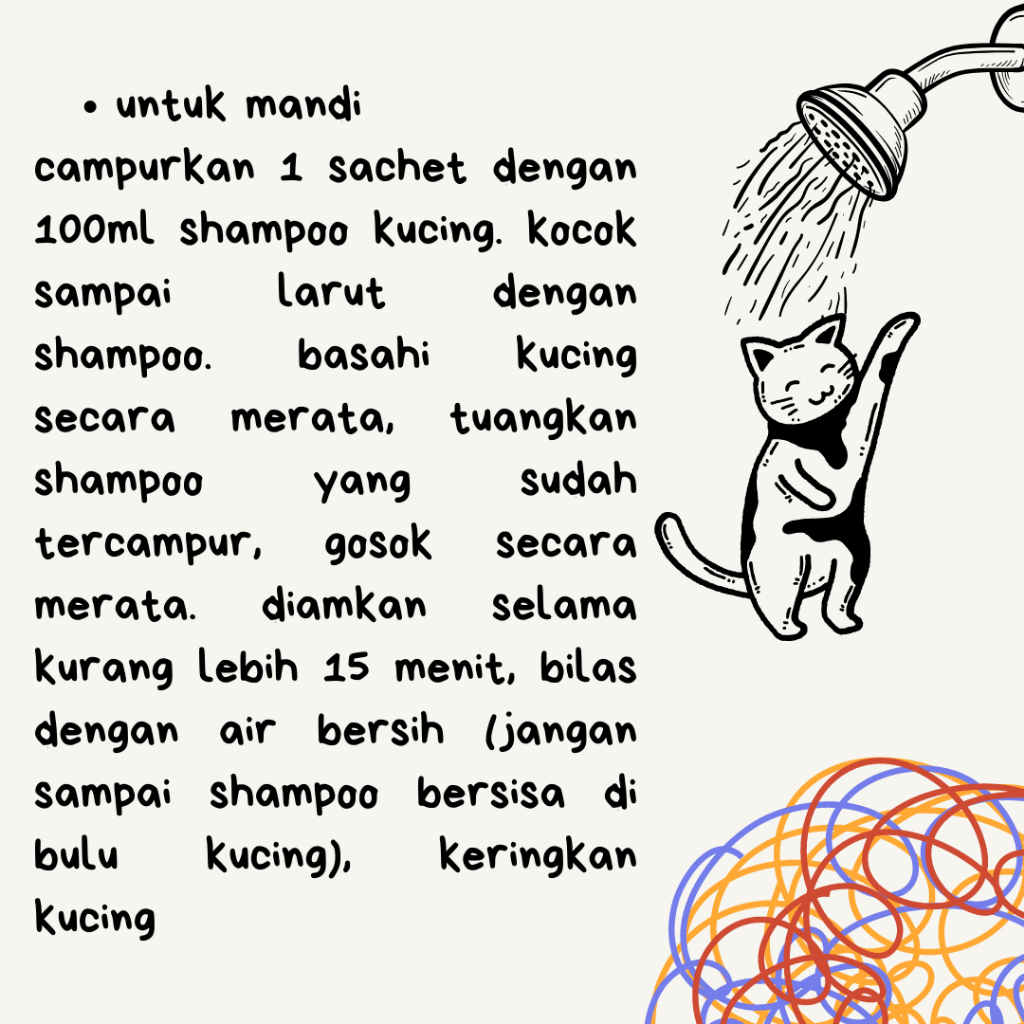 • untuk mandi
campurkan 1 sachet dengan
100ml shampoo kucing. kocok
sampai larut dengan
shampoo. basahi kucing
secara merata, tuangkan
shampoo yang sudah
tercampur, gosok secara
merata. diamkan selama
kurang lebih 15 menit, bilas
dengan air bersih (jangan
sampai shampoo bersisa di
bulu kucing), keringkan
kucing